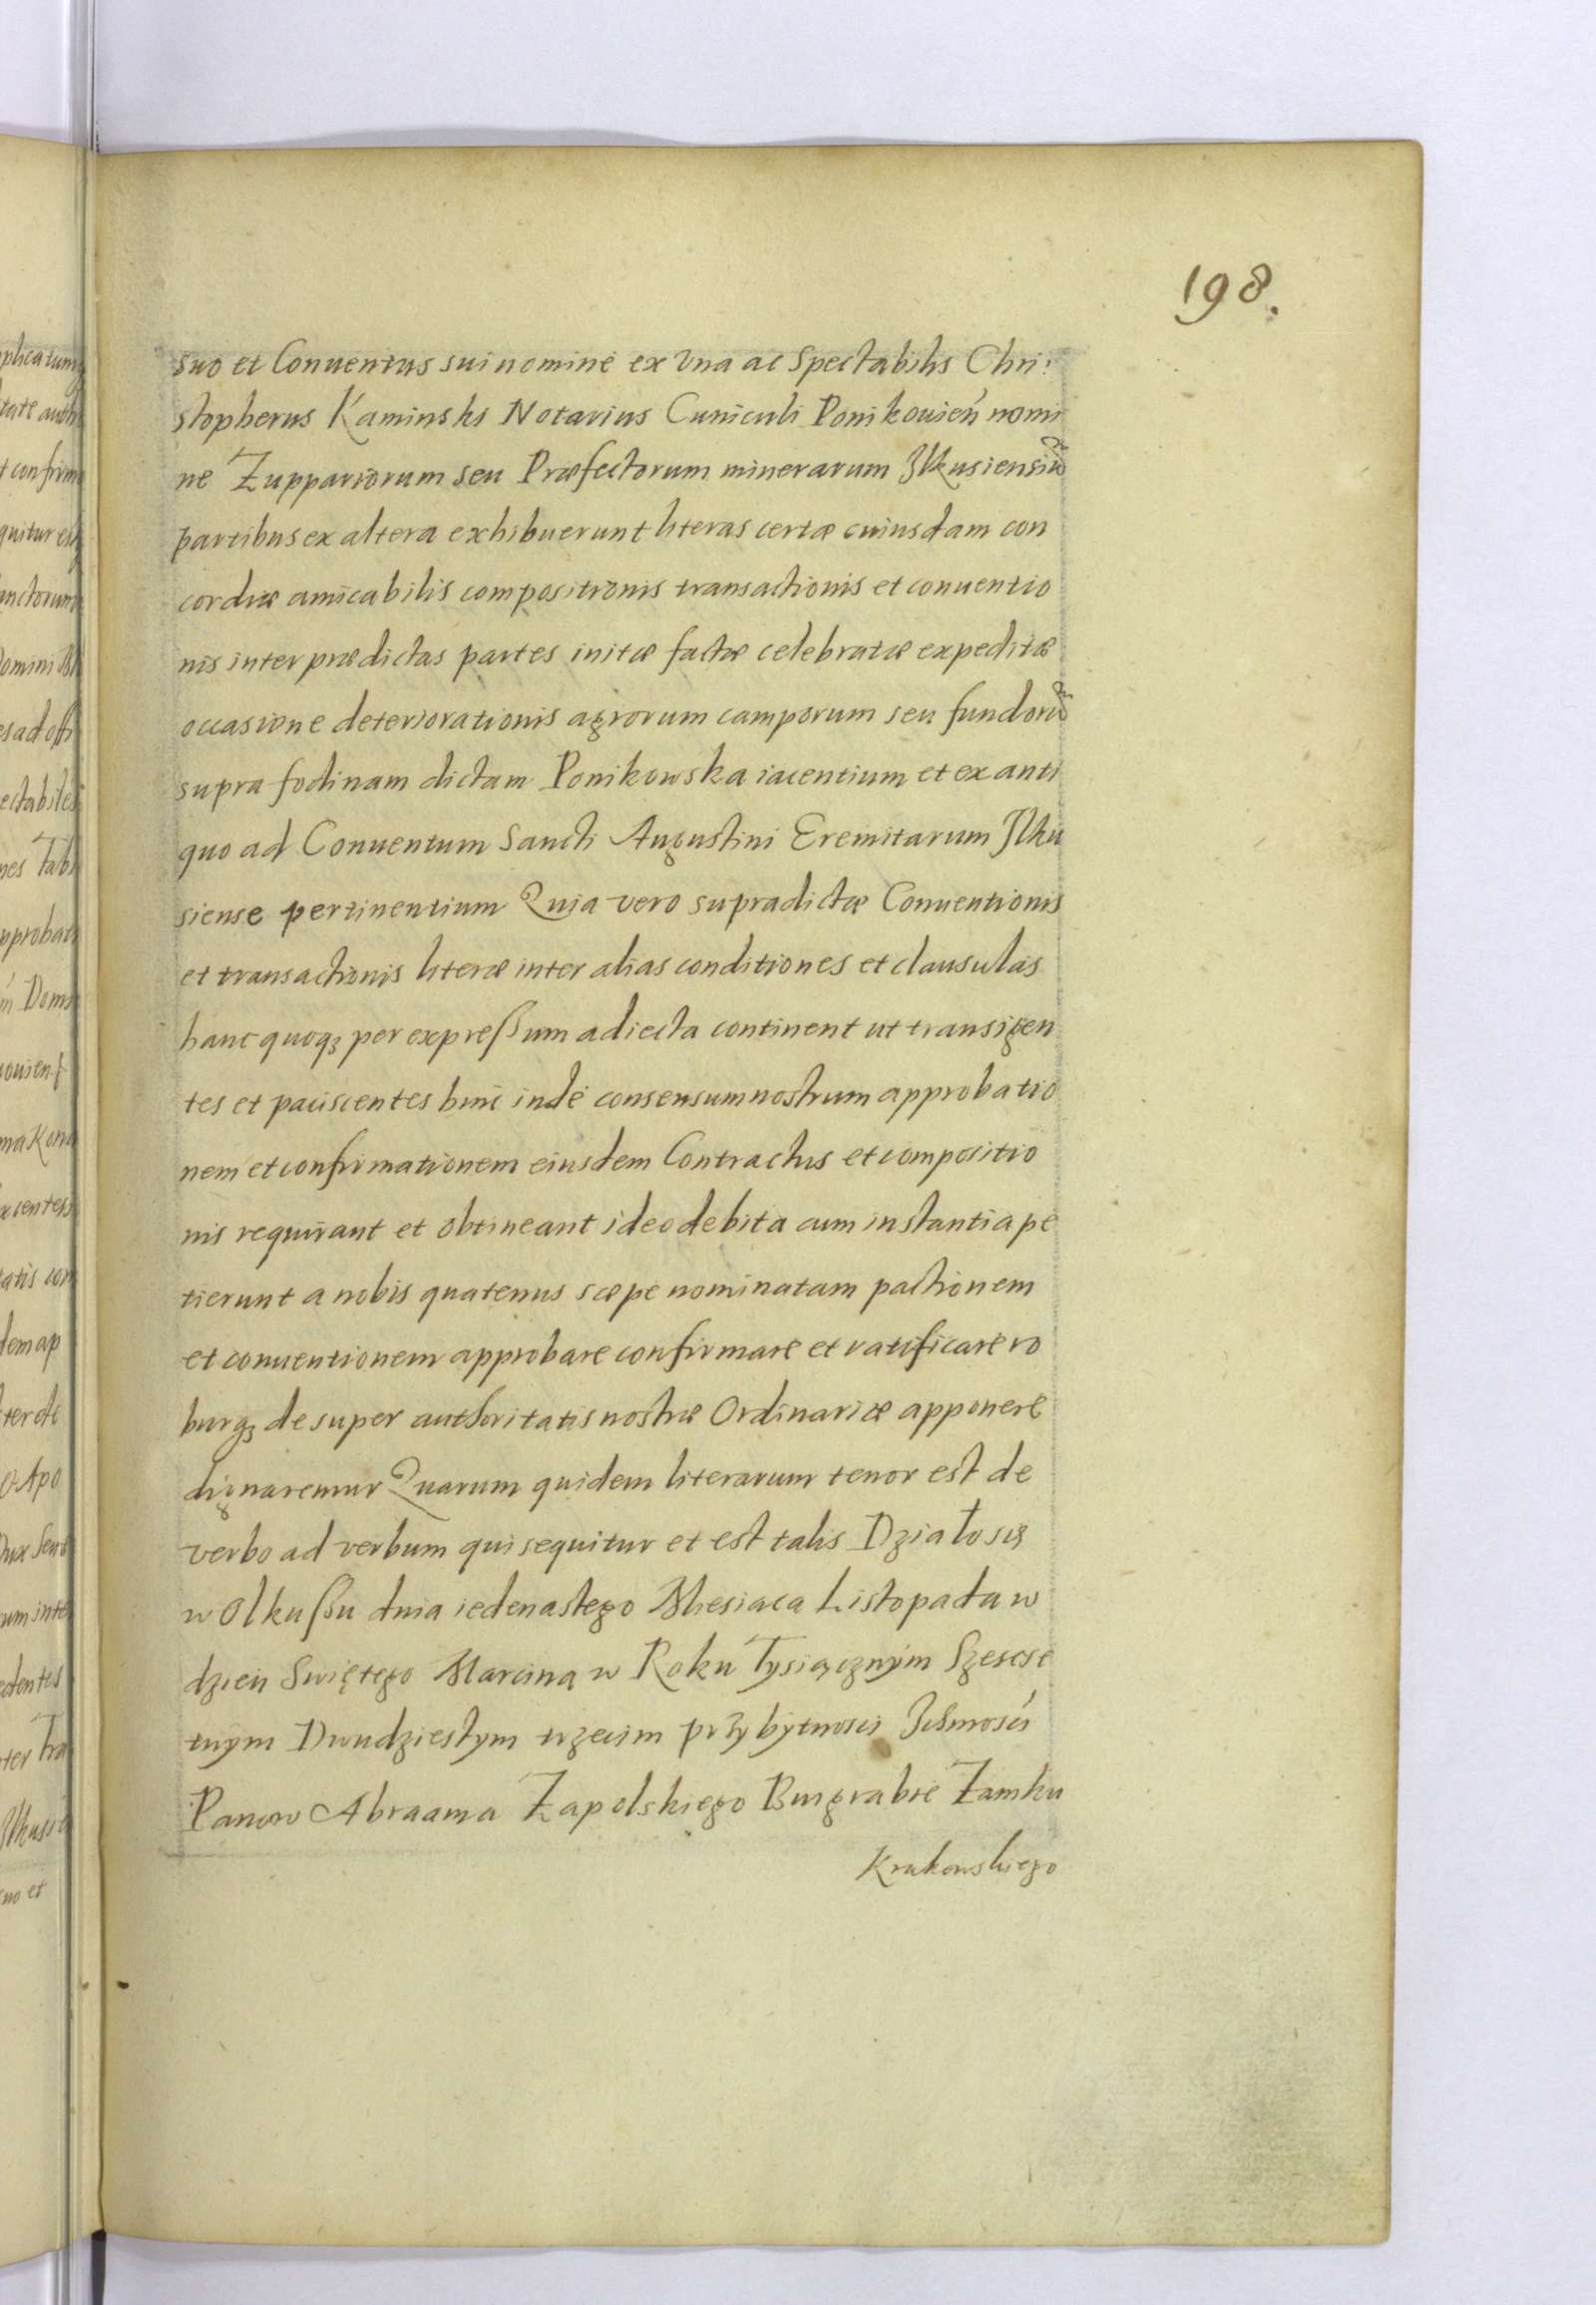 198.
suo et Conuentus sui nomine ex Vna ac Spectabilis Chri:
stopherus Kaminski Notarius Cuniculi Ponikouień nomi
ne Zuppariorum seu Præfectorum minerarum Ilkusiensiũ
partibus ex altera exhibuerunt literas certæ cuiusdam con
cordiæ amicabilis compositionis transactionis et conuentio
nis inter prædictas partes initæ factæ celebratæ expeditæ
occasione deteriorationis agrorum camporum seu fundorũ
supra fodinam dictam Ponikowska iacentium et ex anti
quo ad Conuentum Sancti Augustini Eremitarum Ilku
siense pertinentium Quia vero supradictæ Conuentionis
et transactionis literæ inter alias conditiones et clausulas
hanc quoqȝ per expreſsum adiecta continent ut transigen
tes et paciscentes hinc inde consensum nostrum approbatio
nem et confirmationem eiusdem Contractus et compositio
nis requirant et obtineant ideo debita cum instantia pe
tierunt a nobis quatenus sæpe nominatam pactionem
et conuentionem approbare confirmare et ratificare ro
burqȝ desuper authoritatis nostræ Ordinariæ apponere
dignaremur Quarum quidem literarum tenor est de
verbo ad verbum qui sequitur et est talis Działo się
w Olkuſsu dnia iedenastego Miesiaca Listopada w
dzień Swiętego Marcina w Roku Tysiącznym Szescse
tnym Dwudziestym trzecim przy bytnosci Ichmosci
Panow Abraama Zapolskiego Burgrabie Zamku
Krakowskiego
plicatum
tate auth
t confirm
quitur
nctorum
omini
s ad offi
ectabiles
nes Tab
pprobat
Dom
ouien
ma Kon
centes
atis con
dem ap
ter
Apo
um inte
dentes
ter Tra
Ilkusi
suo et